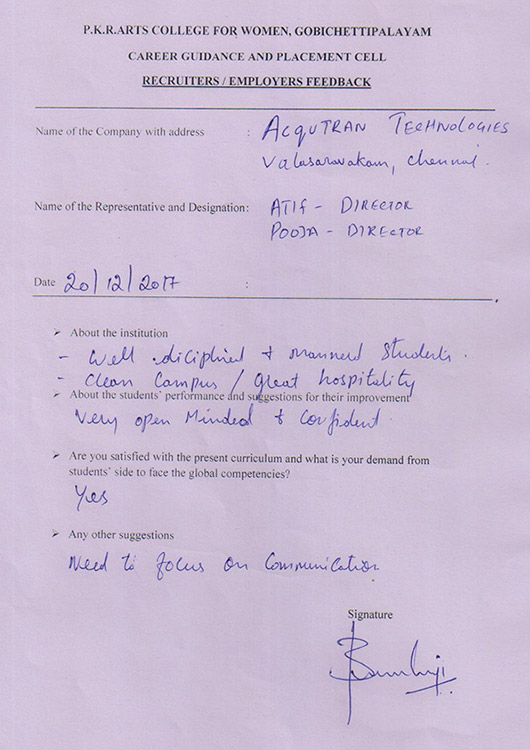 P.K.R.ARTS COLLEGE FOR WOMEN, GOBICHETTIPALAYAM
CAREER GUIDANCE AND PLACEMENT CELL
RECRUITERS / EMPLOYERS FEEDBACK
Name of the Company with address : ACQUTRAN TECHNOLOGIES
Valasaravakam, Chennai.
Name of the Representative and Designation: ATIF - DIRECTOR
POOJA - DIRECTOR
Date 20/12/2017 :
➢ About the institution
- Well diciplined & mannered Students.
- Clean Campus / Great hospitality
➢ About the students' performance and suggestions for their improvement
Very open Minded & Confident.
➢ Are you satisfied with the present curriculum and what is your demand from
students' side to face the global competencies?
Yes
➢ Any other suggestions
Need to focus on Communication
Signature